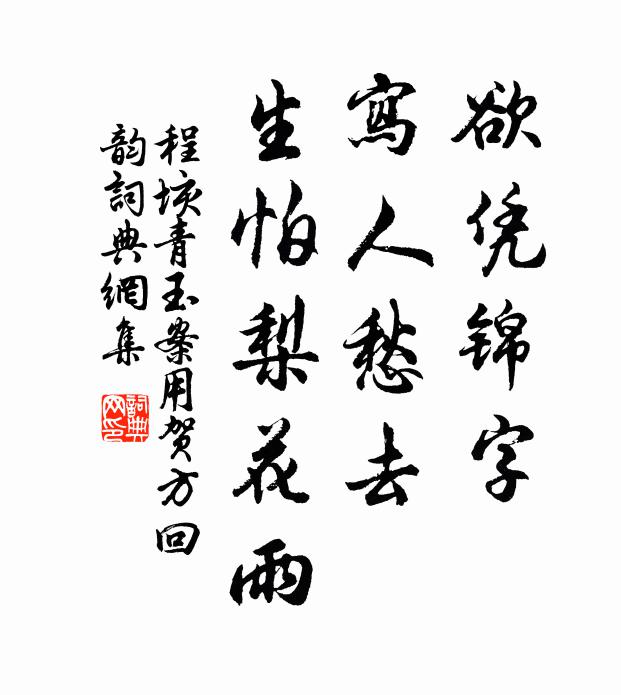 欲凭锦字
寫人愁去
生怕梨花雨
程垓青玉案用贺方回
韵詞典網集
詞典
网印